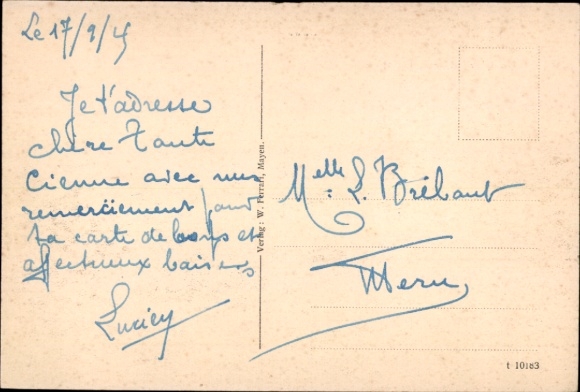 Le 17/9/45
Je t'adresse
chère Tante
avec mes
remerciement pour
ta carte de et
affectueux baisers
Lucien
Verlag: W. Ferrari, Mayen.
Melle L. Brébant
Meru
t 10183